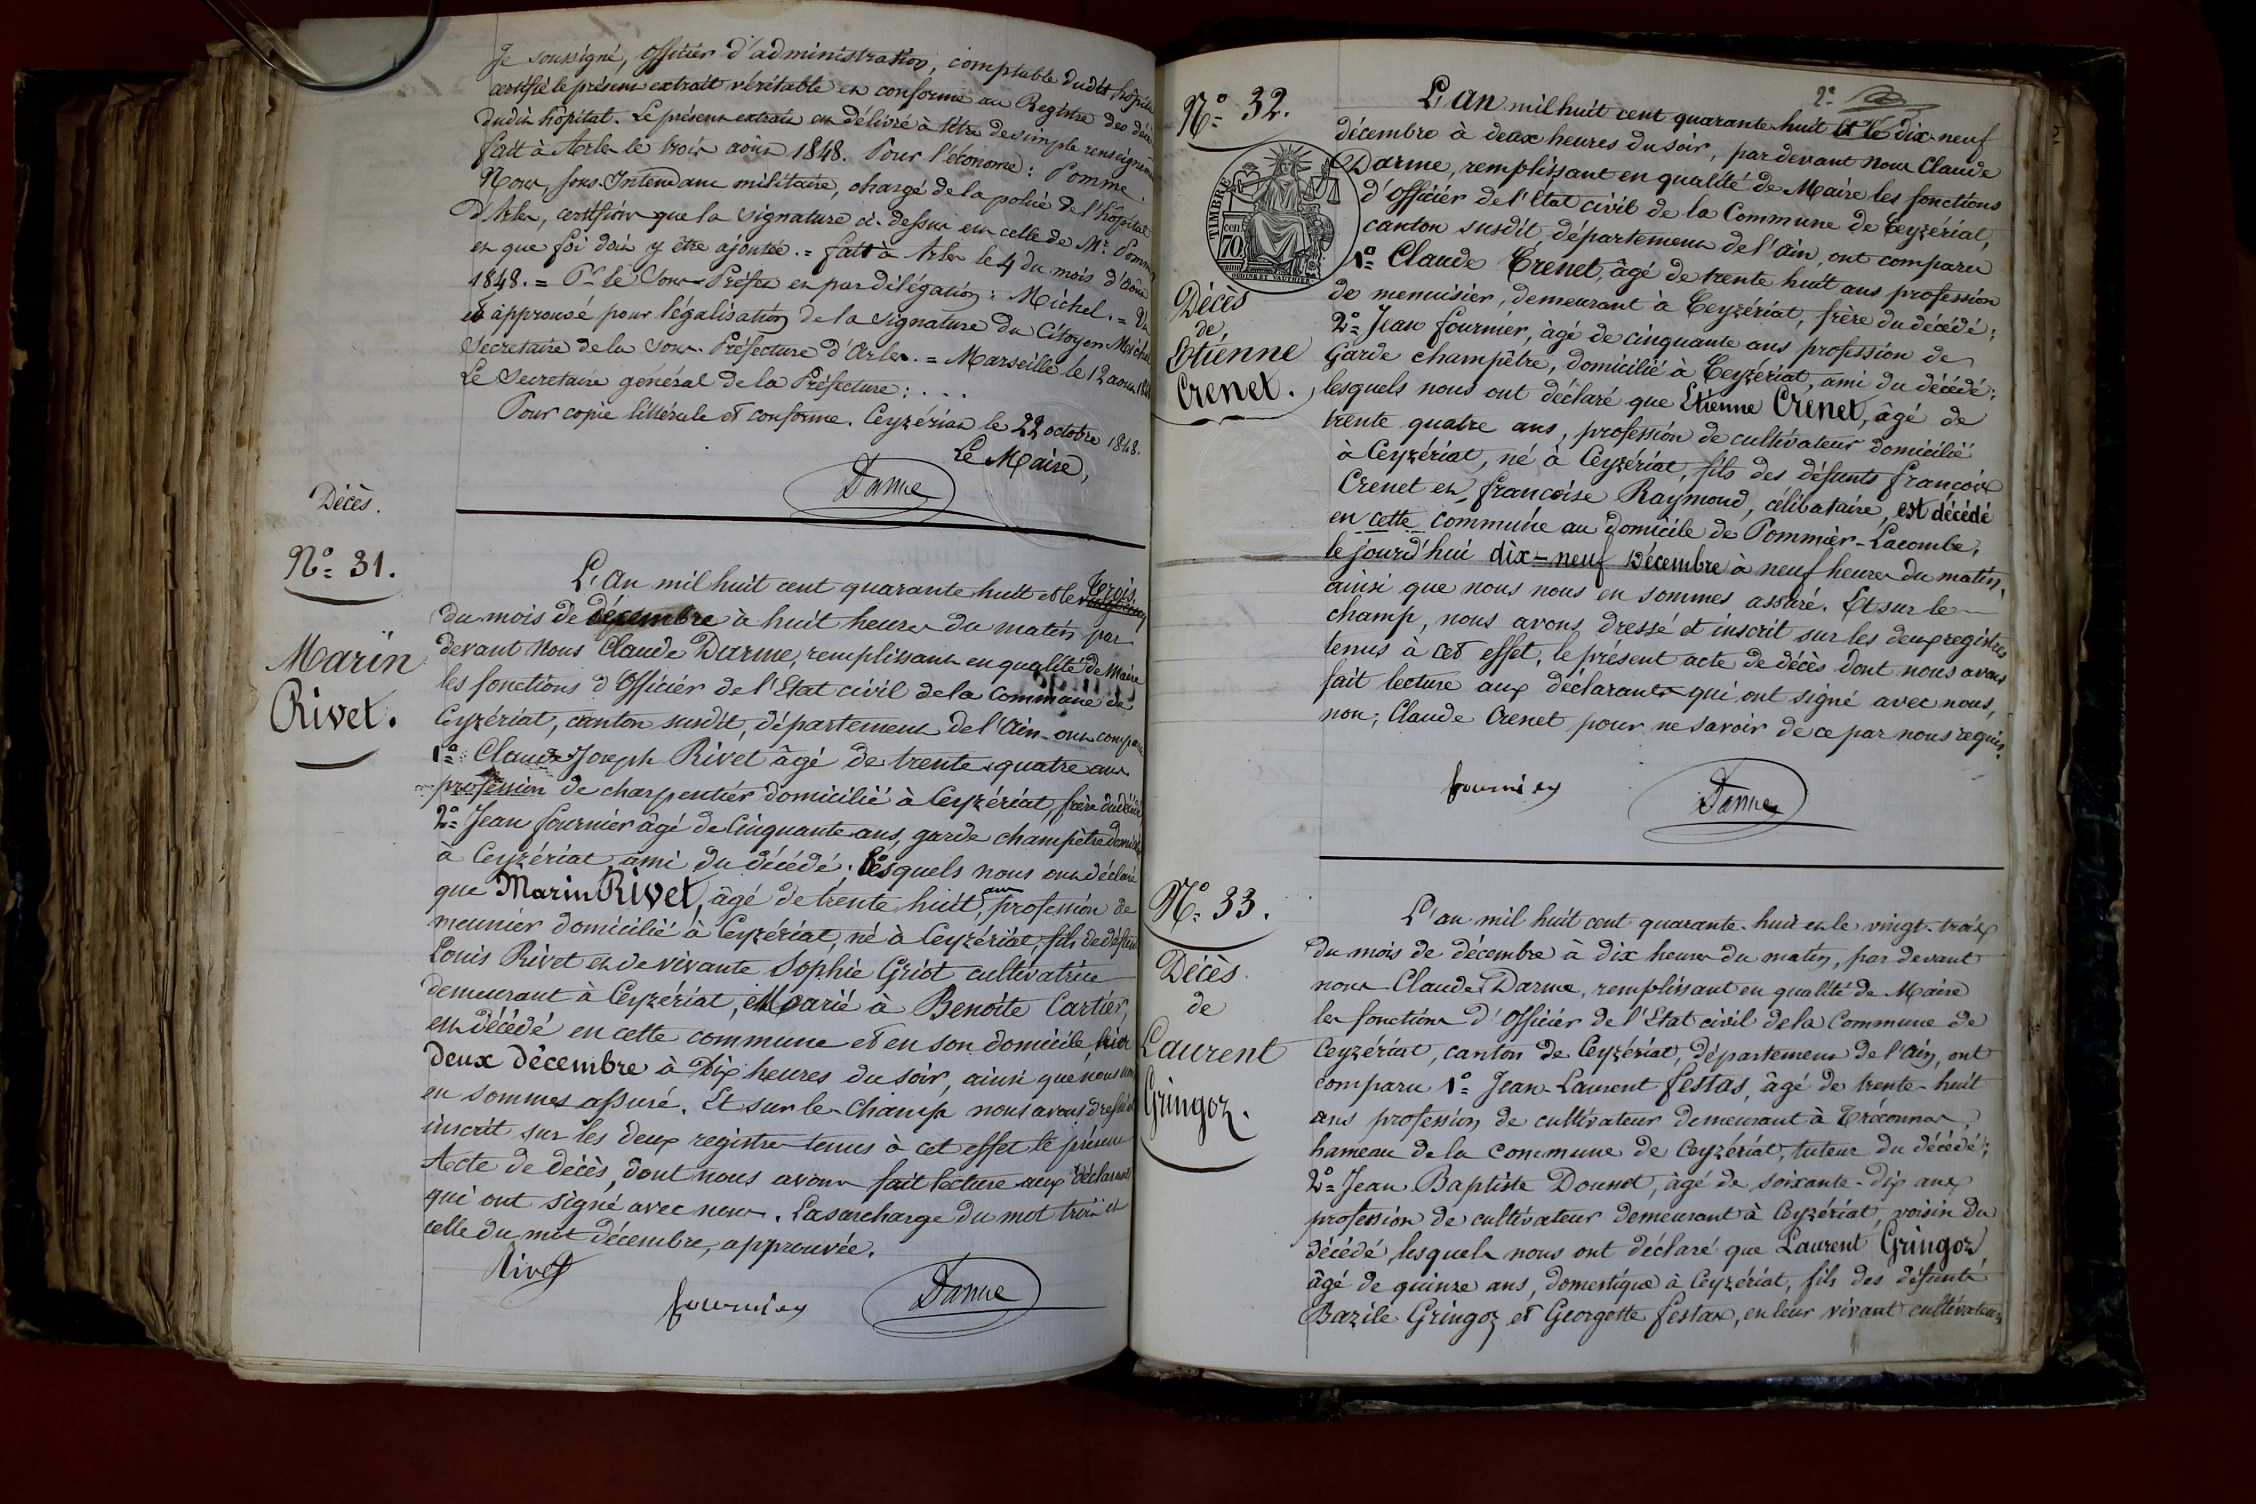 Je soussigné, Officier d'administration, comptable dudit hôpital
certifie le présent extrait véritable et conforme au Registre des décès
dudit hôpital. Le présent extrait est délivré à titre de simple renseignement
fait à Arles le trois août 1848. Pour l'économe : Pomme.
Nous, Sous-Intendant militaire, chargé de la police de l'hôpital
d'Arles, certifions que la signature ci-dessus est celle de Mr. Pomme
et que foi doit y être ajoutée. = fait à Arles le 4 du mois d'août
1848. = Pr. le Sous-Préfet et par délégation : Michel. = Vu
et approuvé pour légalisation de la signature du Citoyen Michel
Secretaire de la Sous-Préfecture d'Arles. = Marseille le 12 août 1848
Le Secretaire général de la Préfecture : . . .
Pour copie littérale et conforme. Ceyzériat le 22 octobre 1848.
Le Maire,
Darme
Décès.
N° 31.
Marin
Rivet.
L'an mil huit cent quarante huit et le trois
du mois de décembre à huit heures du matin par
devant Nous Claude Darme, remplissant en qualité de Maire
les fonctions d'Officier de l'Etat civil de la Commune de
Ceyzériat, canton susdit, département de l'Ain ont comparu
1° Claude Joseph Rivet âgé de trente quatre ans
profession de charpentier domicilié à Ceyzériat, frère du décédé
2° Jean fournier âgé de Cinquante ans, garde champêtre domicilié
à Ceyzériat ami du décédé ; lesquels nous ont déclaré
que Marin Rivet, âgé de trente huit ans, profession de
meunier domicilié à Ceyzériat, né à Ceyzériat, fils de défunt
Louis Rivet et de vivante Sophie Griot cultivatrice
demeurant à Ceyzériat, Marié à Benoite Cartier,
est décédé en cette commune et en son domicile, hier
deux décembre à Dix heures du soir, ainsi que nous nous
en sommes assuré. Et sur le-champ nous avons dressé et
inscrit sur les deux registres tenus à cet effet le présent
Acte de décès, dont nous avons fait lecture aux déclarants
qui ont signé avec nous. La surcharge du mot trois et
celle du mot décembre, approuvée.
Rivet
fournier
Darme
2e
N° 32.
TIMBRE
cen
70
OUDINE ET GAUTHIER
Décès
de
Etienne
Crenet.
L'an mil huit cent quarante huit et le dix-neuf
décembre à deux heures du soir, par devant Nous Claude
Darme, remplissant en qualité de Maire les fonctions
d'Officier de l'Etat civil de la Commune de Ceyzériat,
canton susdit, département de l'Ain, ont comparu
1° Claude Crenet, âgé de trente huit ans profession
de menuisier, demeurant à Ceyzériat, frère du décédé ;
2° Jean fournier, âgé de cinquante ans profession de
Garde champêtre, domicilié à Ceyzériat, ami du décédé ;
lesquels nous ont déclaré que Etienne Crenet, âgé de
trente quatre ans, profession de cultivateur domicilié
à Ceyzériat, né à Ceyzériat, fils des défunts françois
Crenet et françoise Raymond, célibataire, est décédé
en cette commune au domicile de Pommier-Lacombe,
le jourd'hui dix-neuf Décembre à neuf heures du matin,
ainsi que nous nous en sommes assuré. Et sur le-
champ, nous avons dressé et inscrit sur les deux registres
tenus à cet effet, le présent acte de décès dont nous avons
fait lecture aux déclarants qui ont signé avec nous,
non, Claude Crenet pour ne savoir de ce par nous requis.
fournier
Darme
N° 33.
Décès
de
Laurent
Gringoz.
L'an mil huit cent quarante-huit et le vingt-trois
du mois de décembre à dix heures du matin, par devant
nous Claude Darme, remplissant en qualité de Maire
les fonctions d'Officier de l'Etat civil de la Commune de
Ceyzériat, canton de Ceyzériat, département de l'Ain, ont
comparu 1° Jean-Laurent festas, âgé de trente-huit
ans profession de cultivateur demeurant à Tréconnas,
hameau de la commune de Ceyzériat, tuteur du décédé ;
2° Jean Baptiste Dounet, âgé de soixante-dix ans
profession de cultivateur demeurant à Ceyzériat, voisin du
décédé, lesquels nous ont déclaré que Laurent Gringoz,
âgé de quinze ans, domestique à Ceyzériat, fils des défunts
Bazile Gringoz et Georgette festas, en leur vivant cultivateurs